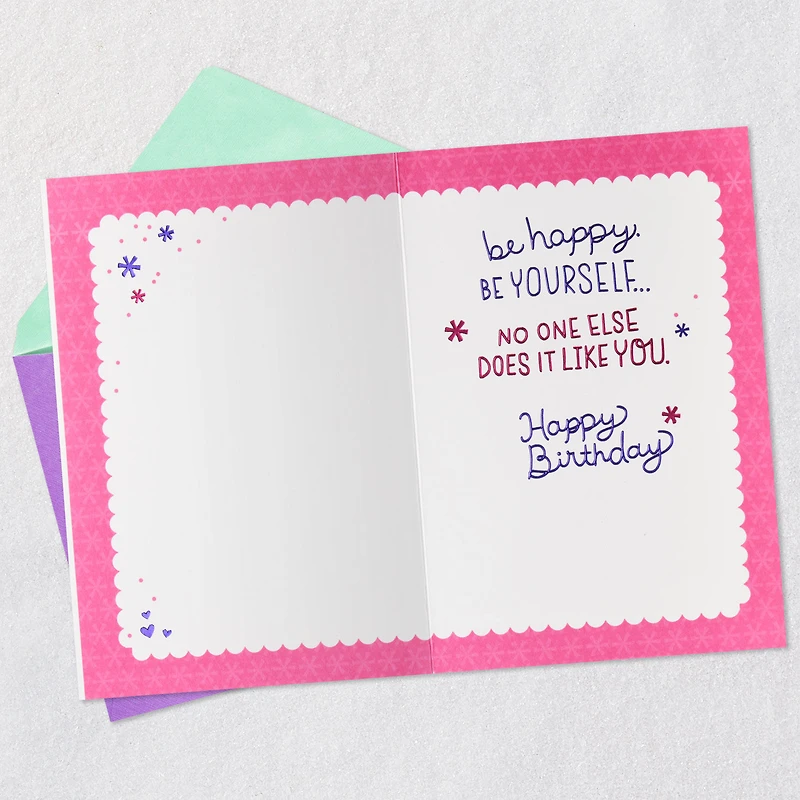 be happy.
BE YOURSELF...
NO ONE ELSE
DOES IT LIKE YOU.
Happy
Birthday